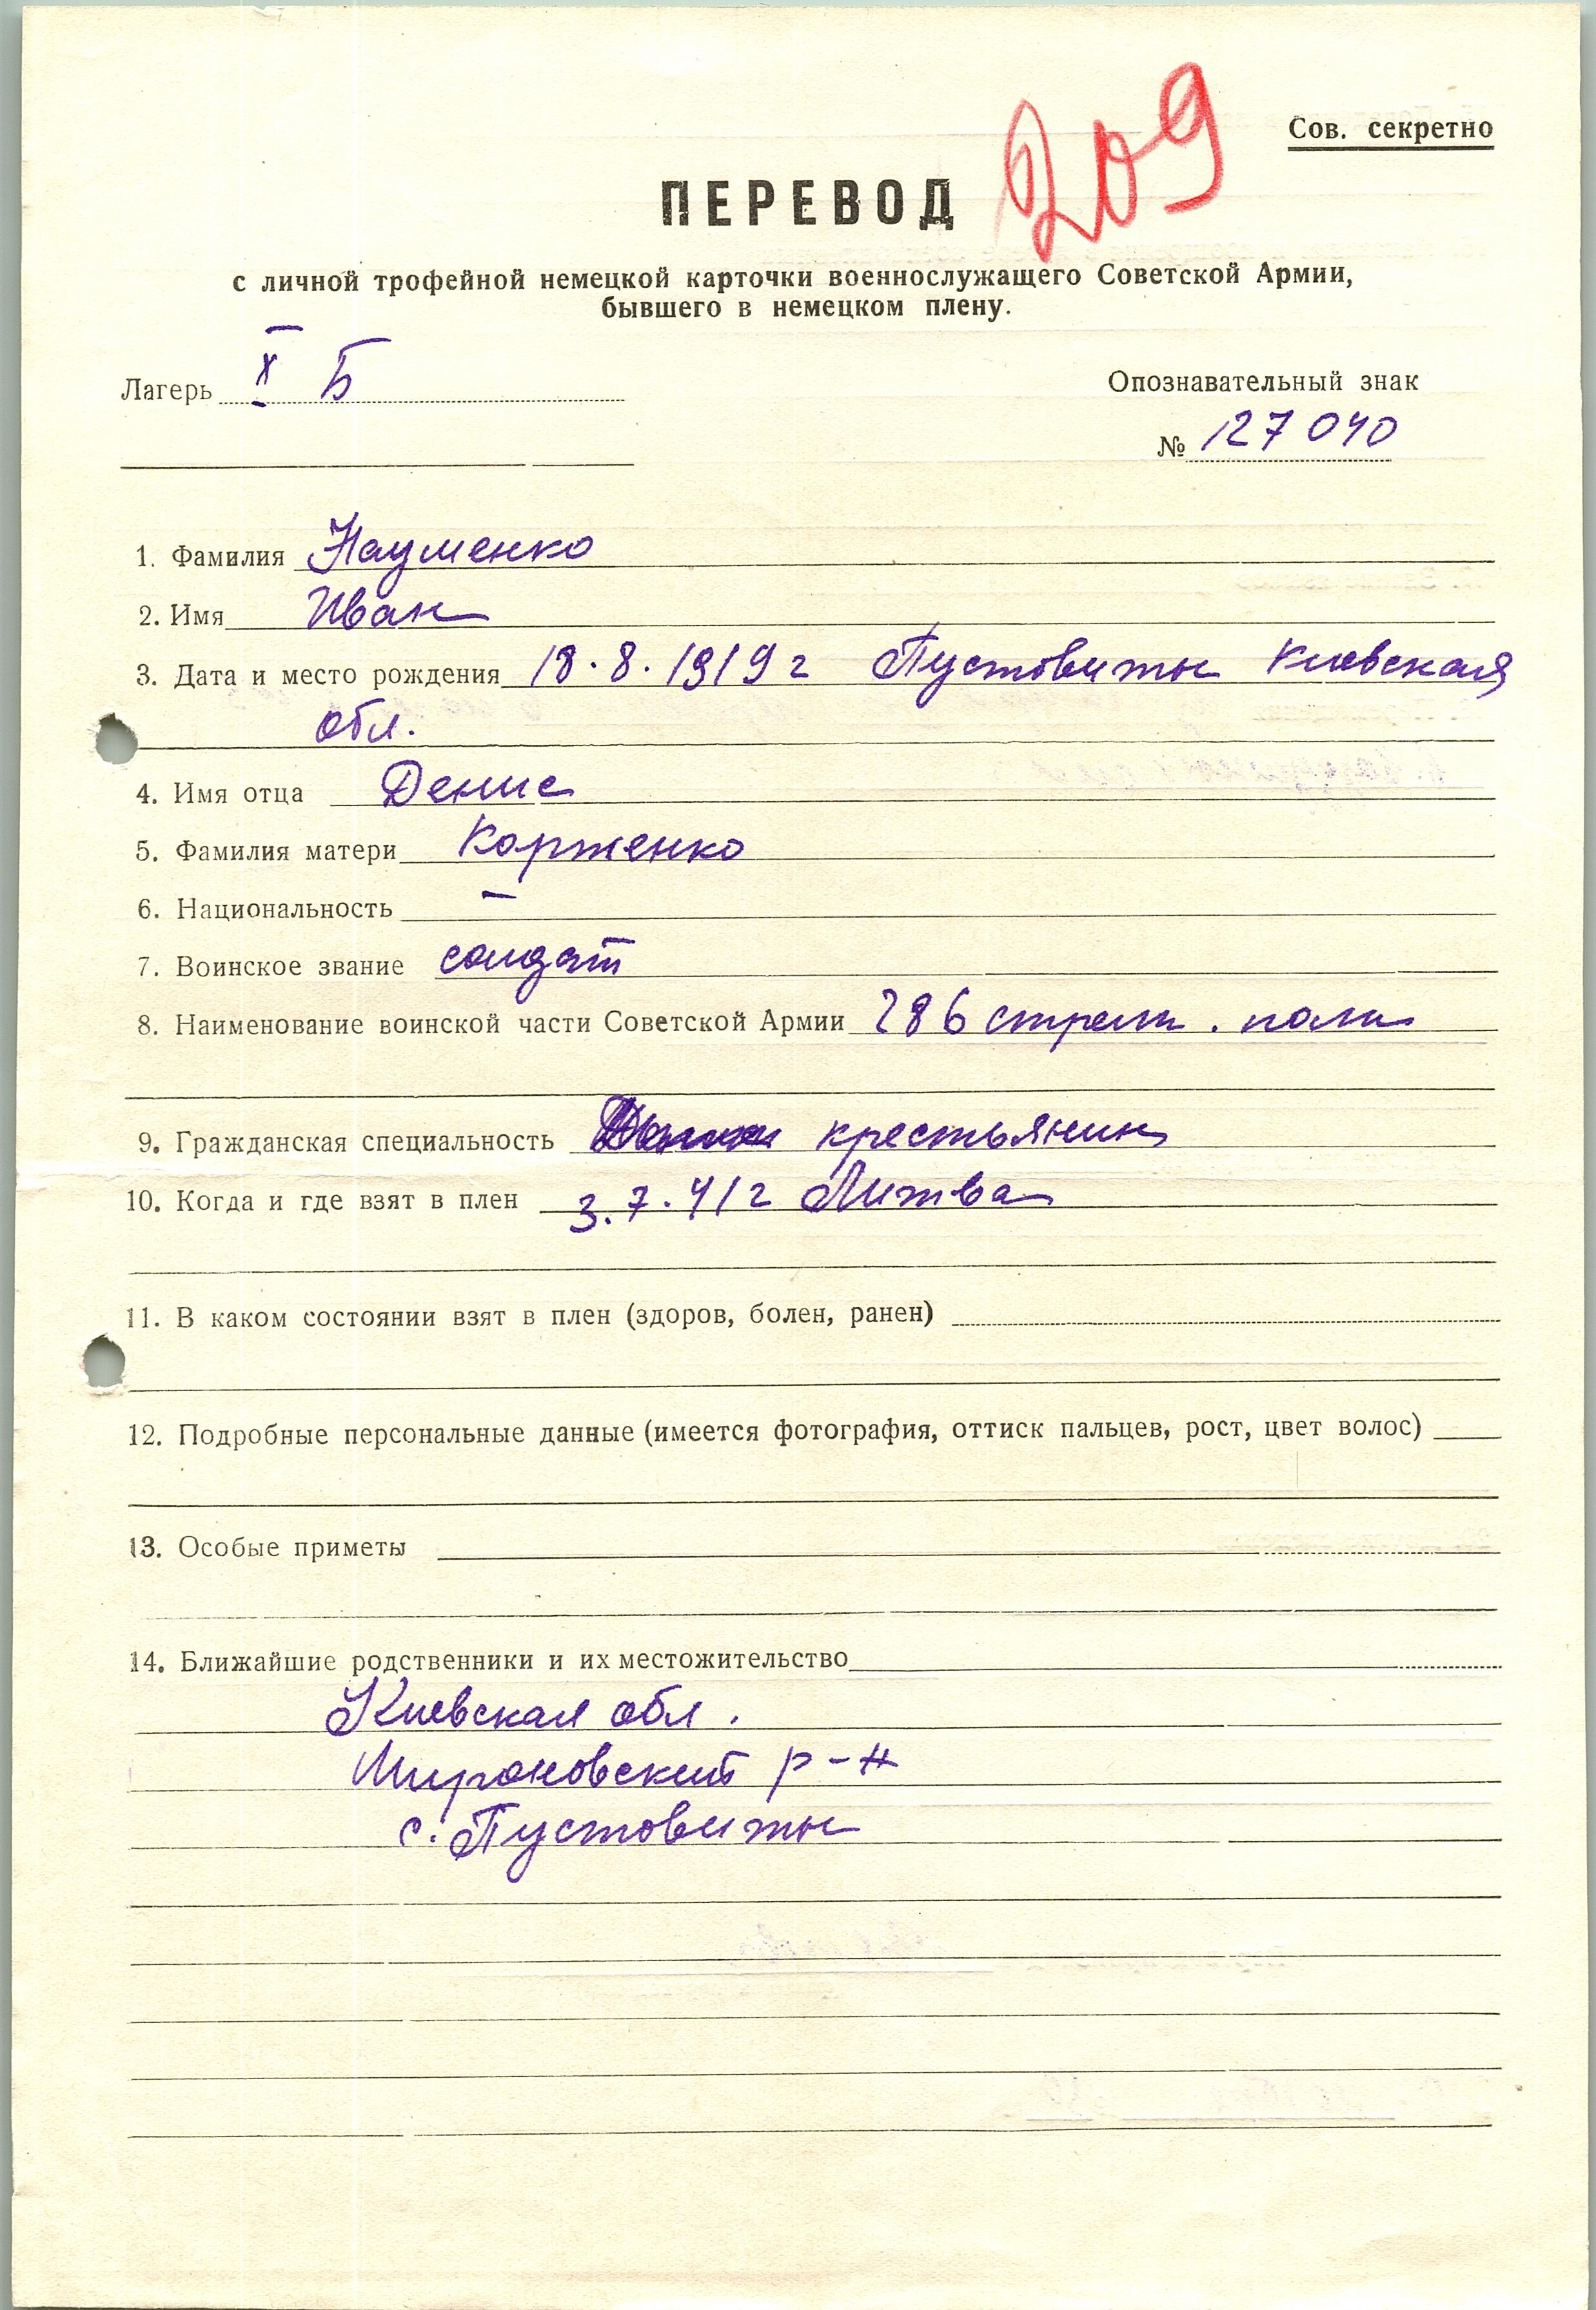 209
Сов. секретно
ПЕРЕВОД
с личной трофейной немецкой карточки военнослужащего Советской Армии,
бывшего в немецком плену.
Лагерь X Б
Опознавательный знак
№ 127040
1. Фамилия Науменко
2. Имя Иван
3. Дата и место рождения 18.8.1919 г Пустовиты Киевская
обл.
4. Имя отца Денис
5. Фамилия матери Корженко
6. Национальность —
7. Воинское звание солдат
8. Наименование воинской части Советской Армии 286 стрелк. полк
9. Гражданская специальность крестьянин
10. Когда и где взят в плен 3.7.41 г Литва
11. В каком состоянии взят в плен (здоров, болен, ранен)
12. Подробные персональные данные (имеется фотография, оттиск пальцев, рост, цвет волос)
13. Особые приметы
14. Ближайшие родственники и их местожительство
Киевская обл.
Мироновский р-н
с. Пустовиты